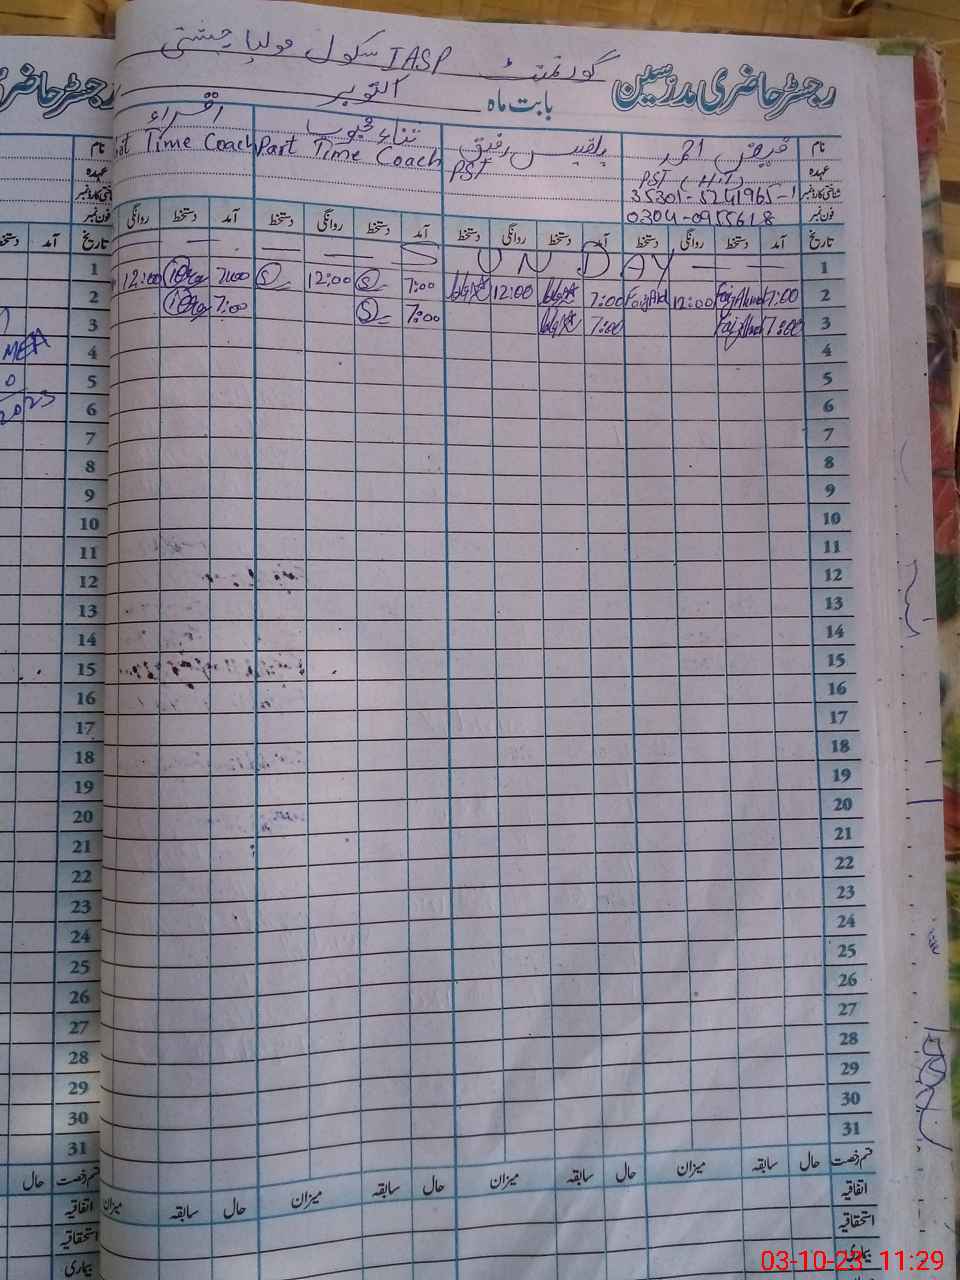 رجسٹر حاضری مدرسین گورنمنٹ IASP سکول مولیا چشتی
بابت ماہ اکتوبر
نام فیض احمد بلقیس رفیق ثناء محبوب اقراء
عہدہ PST (H.T) PST Part Time Coach Part Time Coach
شناختی کارڈ نمبر 35301-5241965-1
فون نمبر 0304-0955618
تاریخ آمد دستخط روانگی دستخط آمد دستخط روانگی دستخط آمد دستخط روانگی دستخط آمد دستخط روانگی
1 — — S U N D A Y — —
2 7:00 Faiz Ahmad 12:00 Faiz Ahmad 7:00 12:00 7:00 S 12:00 S 7:00 12:00
3 7:00 Faiz Ahmad 7:00 7:00 S 7:00
4
5
6
7
8
9
10
11
12
13
14
15
16
17
18
19
20
21
22
23
24
25
26
27
28
29
30
31
قسم رخصت حال سابقہ میزان حال سابقہ میزان حال سابقہ میزان حال سابقہ میزان
اتفاقیہ
استحقاقیہ
بیماری
رجسٹر حاضری
نام
عہدہ
شناختی کارڈ نمبر
فون نمبر
تاریخ آمد دستخط
1
2
3
4 MEA
5
6 2023
7
8
9
10
11
12
13
14
15
16
17
18
19
20
21
22
23
24
25
26
27
28
29
30
31
قسم رخصت حال
اتفاقیہ
استحقاقیہ
بیماری
03-10-23 11:29